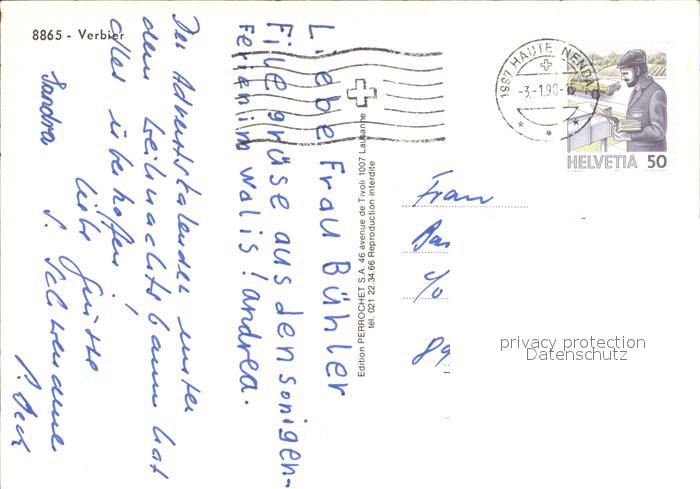 8865 - Verbier
Liebe Frau Bühler
File grüse aus den sonigen-
Ferien im Walis! andrea.
Der Adventskalender unter
dem Weihnachtsbaum hat
alles übertroffen!
liebi Grüsse
Sandra
Edition PERROCHET S.A. 46 avenue de Tivoli 1007 Lausanne
tél. 021 22.34.66 Reproduction interdite
1997 HAUTE-NENDAZ
-3.-1.90-
HELVETIA 50
Frau
c/o
89
privacy protection
Datenschutz